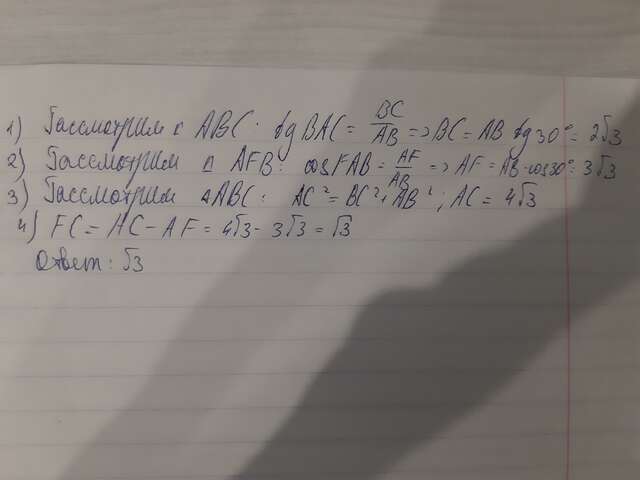 1) Рассмотрим △ ABC. tg BAC = BC/AB => BC = AB tg30° = 2√3
2) Рассмотрим △ AFB: cos FAB = AF/AB => AF = AB·cos30° = 3√3
3) Рассмотрим △ABC: AC² = BC²+AB²; AC = 4√3
4) FC = AC - AF = 4√3 - 3√3 = √3
Ответ: √3